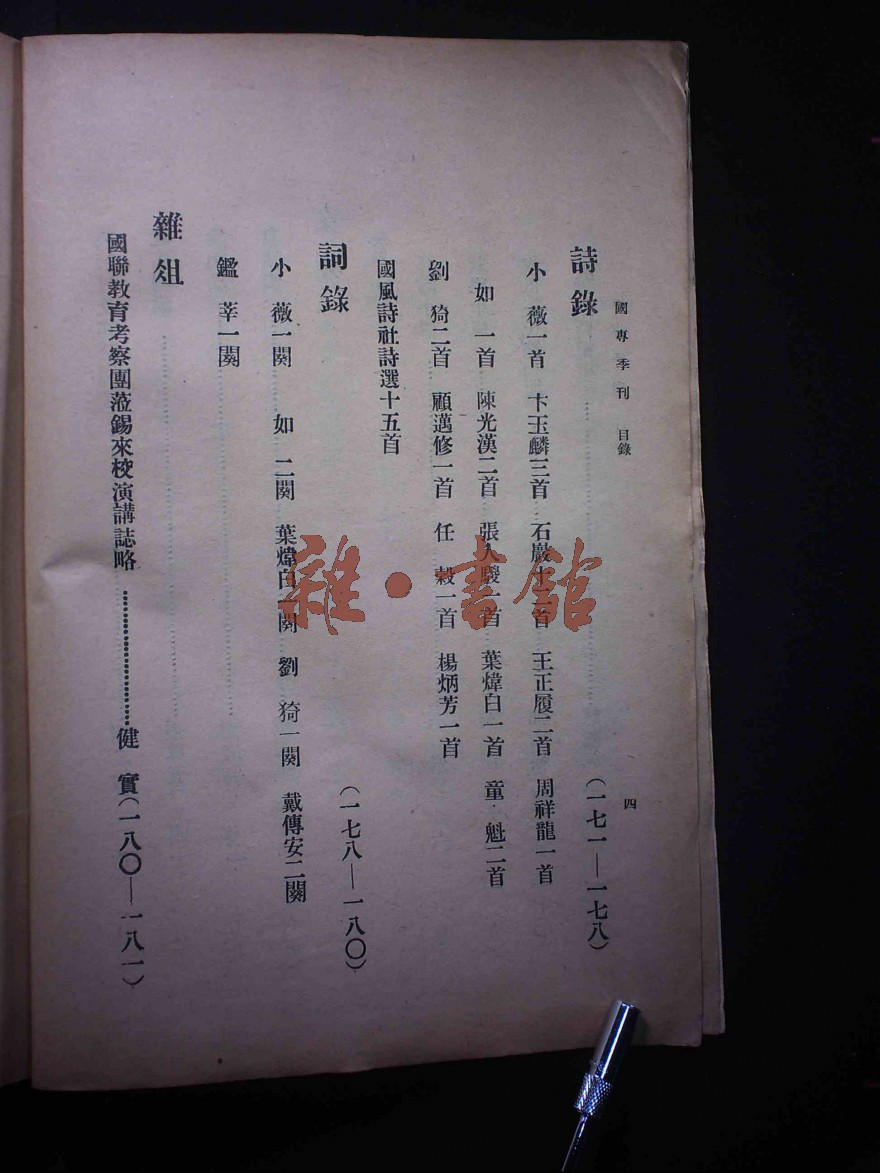 國專季刊 目錄 四
詩錄 (一七一—一七八)
小 薇一首 卞玉麟三首 石巖十二首 王正履二首 周祥龍一首
如 一首 陳光漢二首 張人駿一首 葉煒白一首 童 魁二首
劉 猗二首 顧邁修一首 任 穀一首 楊炳芳一首
國風詩社詩選十五首
詞錄 (一七八—一八〇)
小 薇一闋 如 二闋 葉煒白一闋 劉 猗一闋 戴傳安二闋
鑑 莘一闋
雜俎
國聯教育考察團蒞錫來校演講誌略……………………健 實(一八〇—一八一)
雜·書館